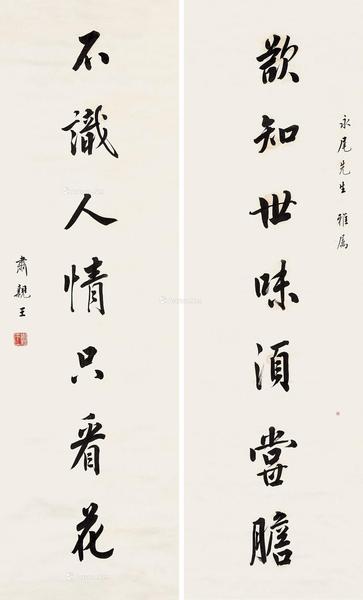 永尾先生 雅属
欲知世味須嘗膽
不識人情只看花
肅親王